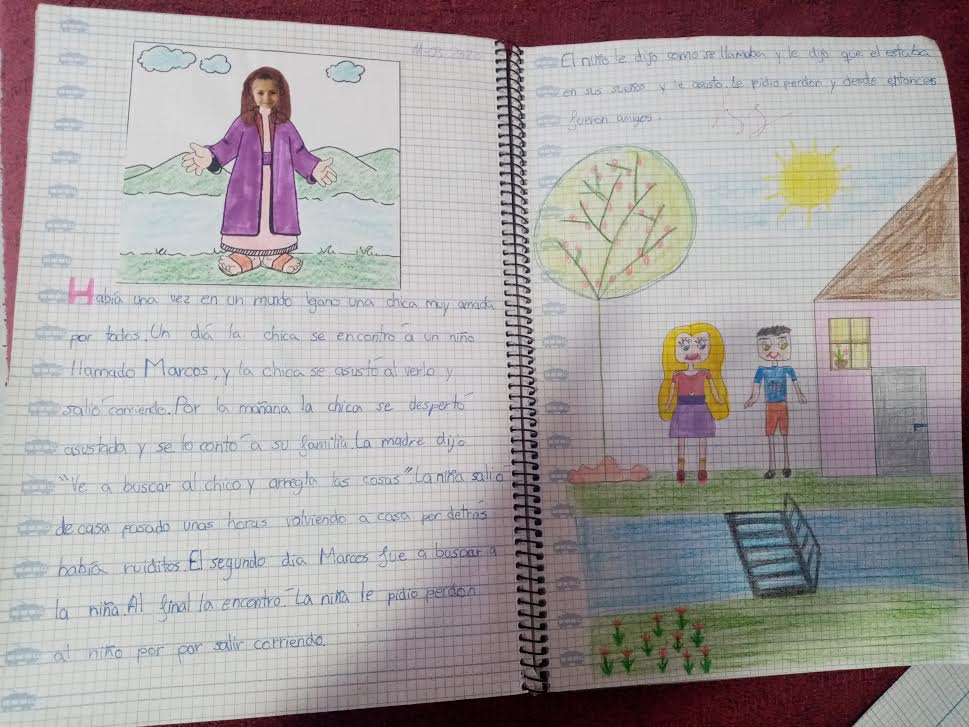 Había una vez en un mundo lgano una chica muy amada
por todos. Un día la chica se encontró a un niño
llamado Marcos, y la chica se asustó al verlo y
salió corriendo. Por la mañana la chica se despertó
asustada y se lo contó a su familia. La madre dijo
"Ve a buscar al chico y arregla las cosas" La niña salio
de casa pasado unas horas volviendo a casa por detrás
había ruiditos. El segundo día Marcos fue a buscar a
la niña. Al final la encontró. La niña le pidio perdon
al niño por por salir corriendo.
El niño le dijo como se llamaba y le dijo que el estaba
en sus sueños y le asusto. Le pidio perdon y desde entonces
fueron amigos.